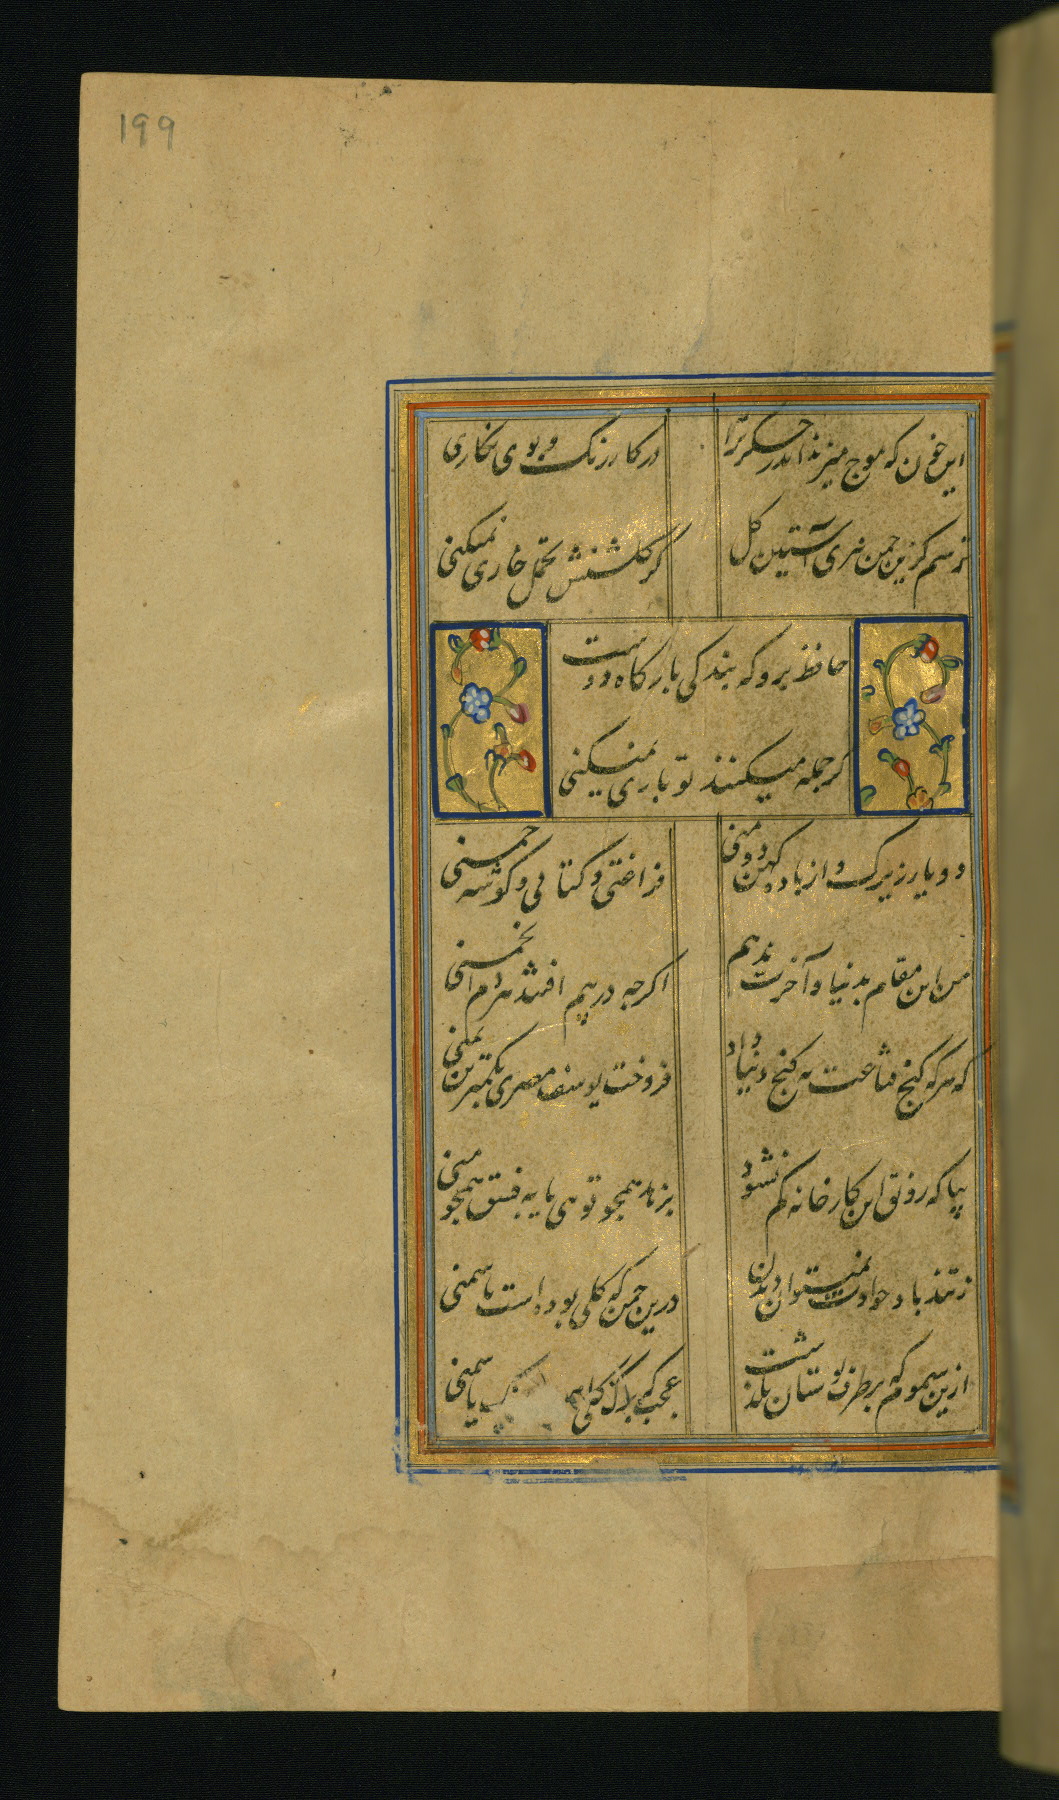 199
این خون که موج میزند اندر جگر ترا
در کار رنگ و بوی نگاری
ترسم کزین چمن نبری آستین گل
کز گلشنش تحمل خاری نمیکنی
حافظ برو که بندگی بارگاه دوست
گر جمله میکنند تو باری نمیکنی
دو یار زیرک و از باده کهن دو منی
فراغتی و کتابی و گوشه چمنی
من این مقام بدنیا و آخرت ندهم
اگرچه در پیم افتند هر دم انجمنی
که هر که کنج قناعت به گنج دنیا داد
فروخت یوسف مصری بکمترین ثمنی
بیا که رونق این کارخانه کم نشود
بزهد همچو تویی یا به فسق همچو منی
ز تندباد حوادث نمیتوان دیدن
درین چمن که گلی بوده است یا سمنی
ازین سموم که بر طرف بوستان بگذشت
عجب که یاسمنی